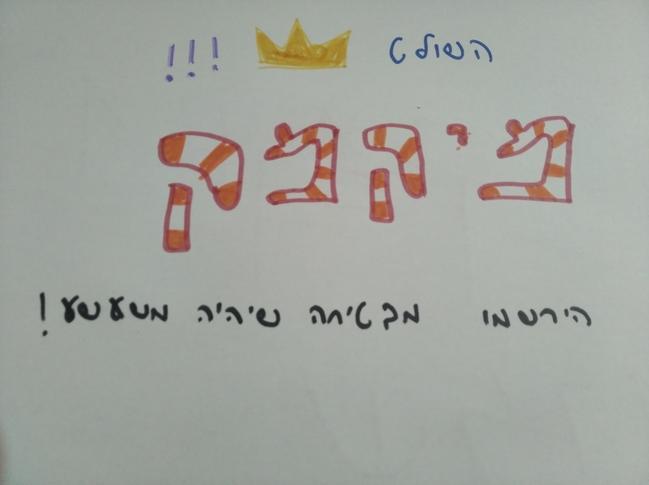 השולט !!!
פיקפק
הירשמו מבטיחה שיהיה משעשע!